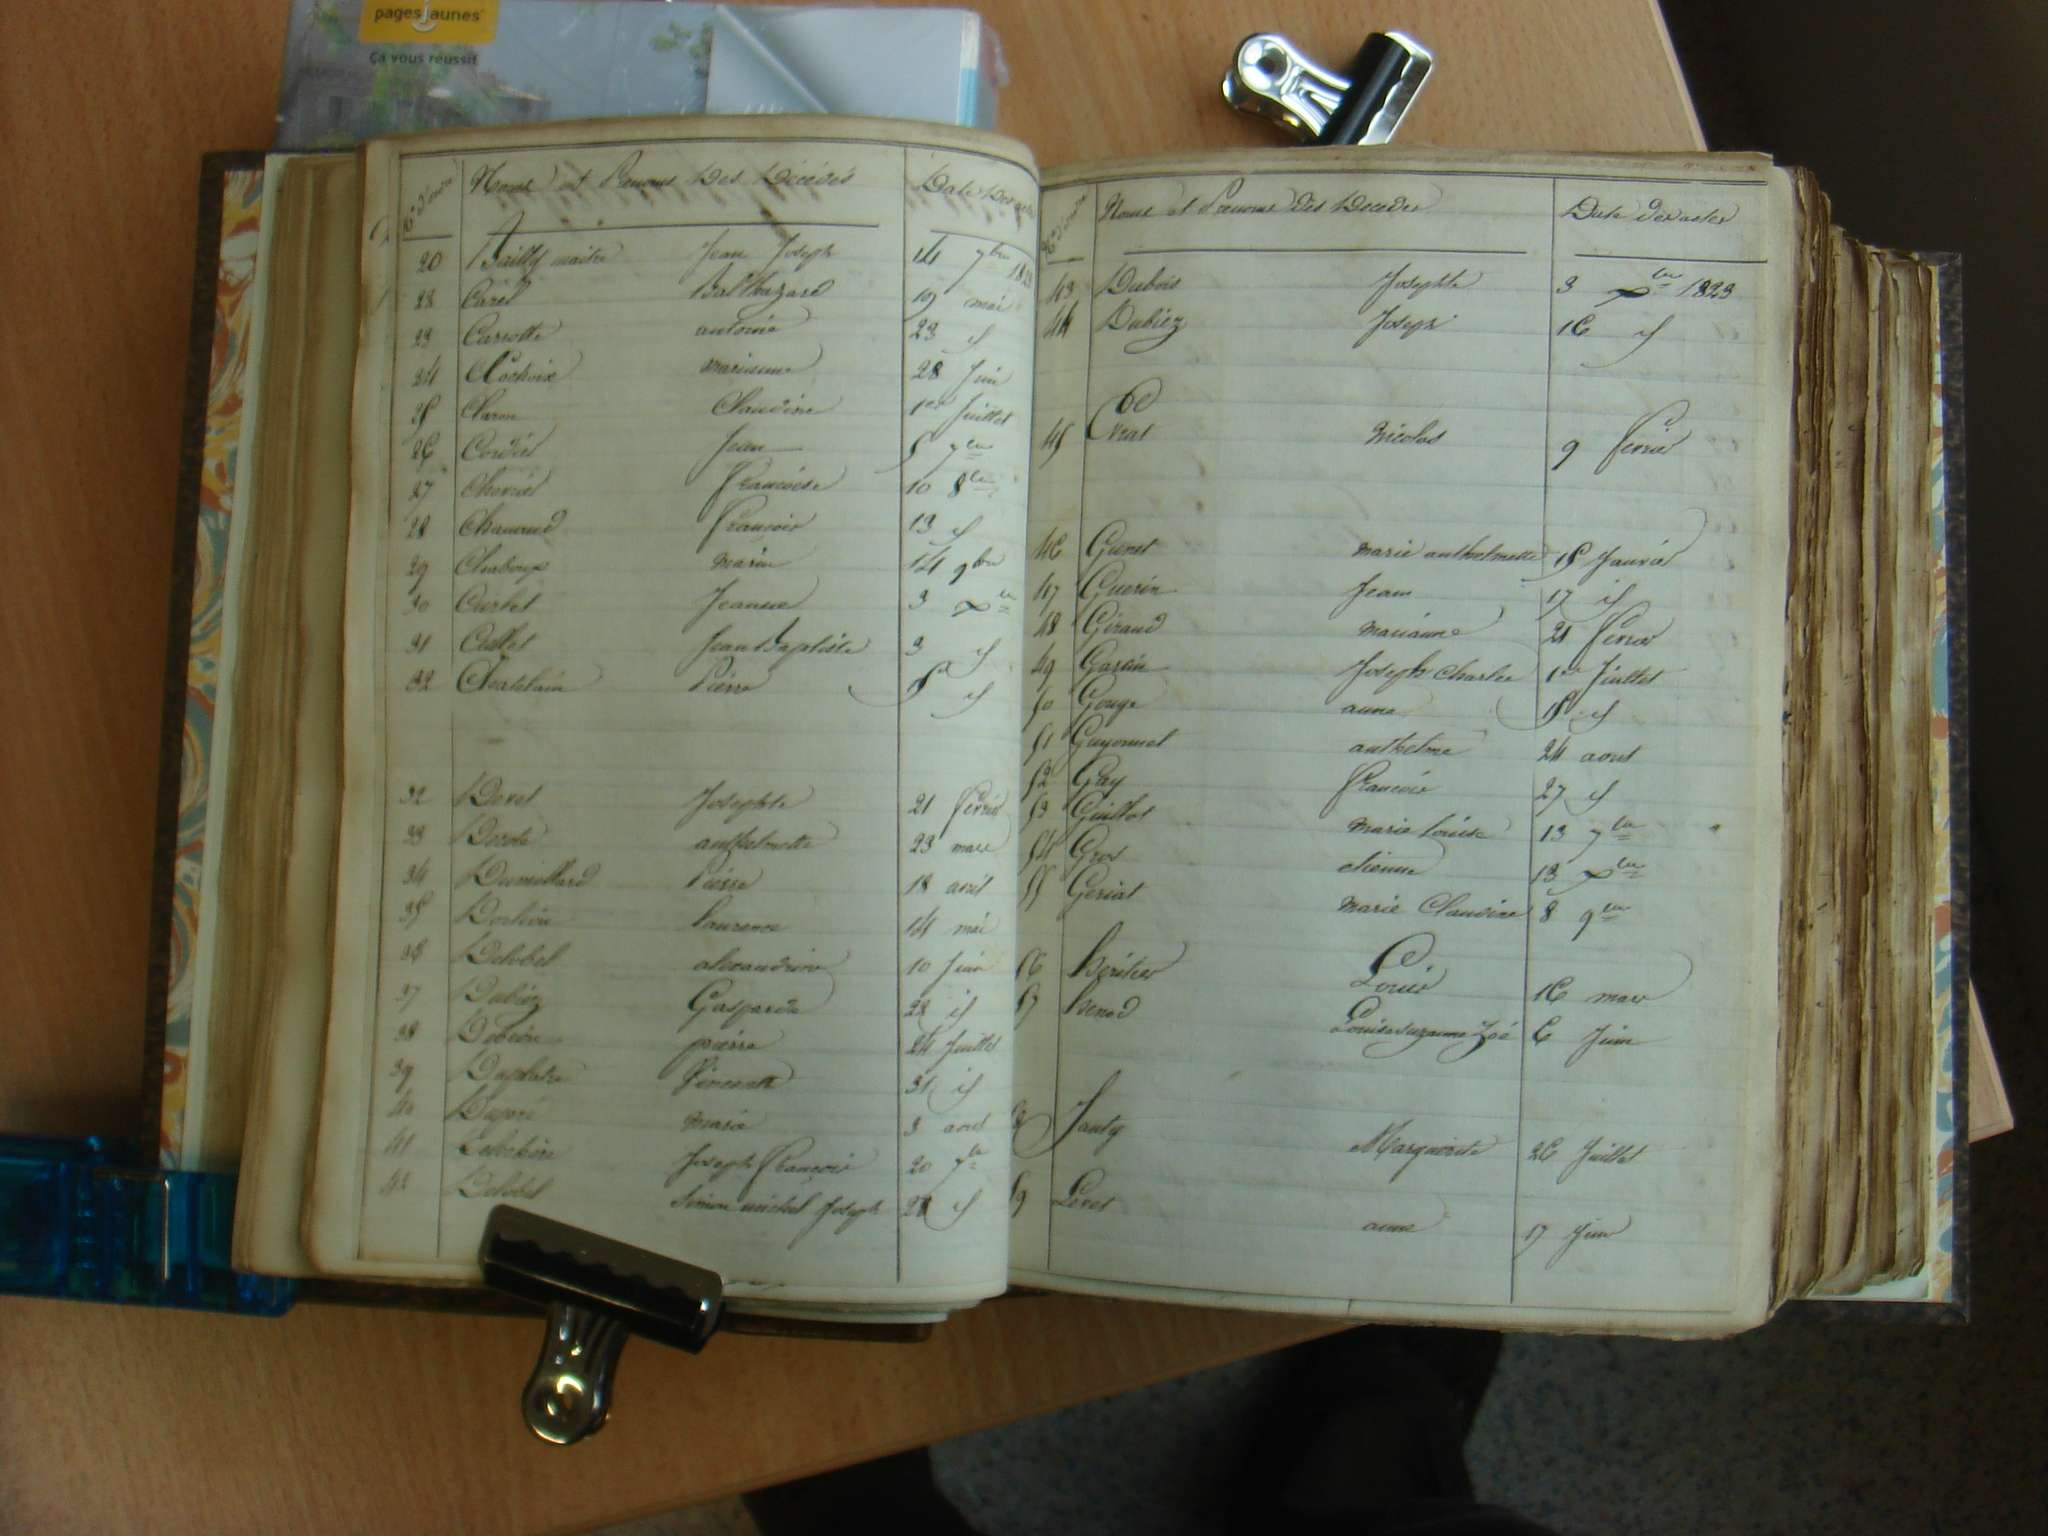 pagesjaunes
Ça vous réussit
N.o d'ordre Noms et Prénoms Des Décédés Date Des actes
20 Bailly maitre Jean Joseph 14 7bre 1823
22 Carel Balthazard 19 mai
23 antoine 23 id
24 marianne 28 Juin
25 Claron Claudine 1er Juillet
26 Cordier Jean 5 7bre
27 Chevrier Francoise 10 8bre
28 Chanaud François 13 id
29 Chaboux marie 14 9bre
30 Curtet Jeanne 3 Xbre
31 Callet Jean Baptiste 3 id
32 Chatelain Pierre 5 id
32 Devet Josephte 21 fevrier
33 anthelmette 23 mars
34 Dumollard Pierre 18 avril
35 Laurence 14 mai
36 Delobel alexandrine 10 Juin
37 Dubiez Gasparde 22 id
38 pierre 24 Juillet
39 31 id
40 marie 3 aout
41 Joseph François 20 7bre
42 Delobel Simon michel Joseph 28 id
N.o d'ordre Noms et Prenoms des Decedes Date des actes
43 Dubois Josephte 3 Xbre 1823
44 Dubiez Joseph 16 id
E
45 Evrat Nicolas 9 fevrier
46 Grenet marie anthelmette 15 Janvier
47 Guerin Jean 17 id
48 Giraud marianne 21 fevrier
49 Garcin Joseph Charles 1er Juillet
50 Gouge anne 15 id
51 Guyonnet anthelme 24 aout
52 Gay francois 27 id
53 Guillot marie Louise 13 7bre
54 Gros etienne 13 Xbre
55 Geriat marie Claudine 8 9bre
56 heritier Louis 16 mars
57 henod Louise suzanne Zoé 6 Juin
58 Janty Marguerite 26 Juillet
59 Levet anne 17 Juin